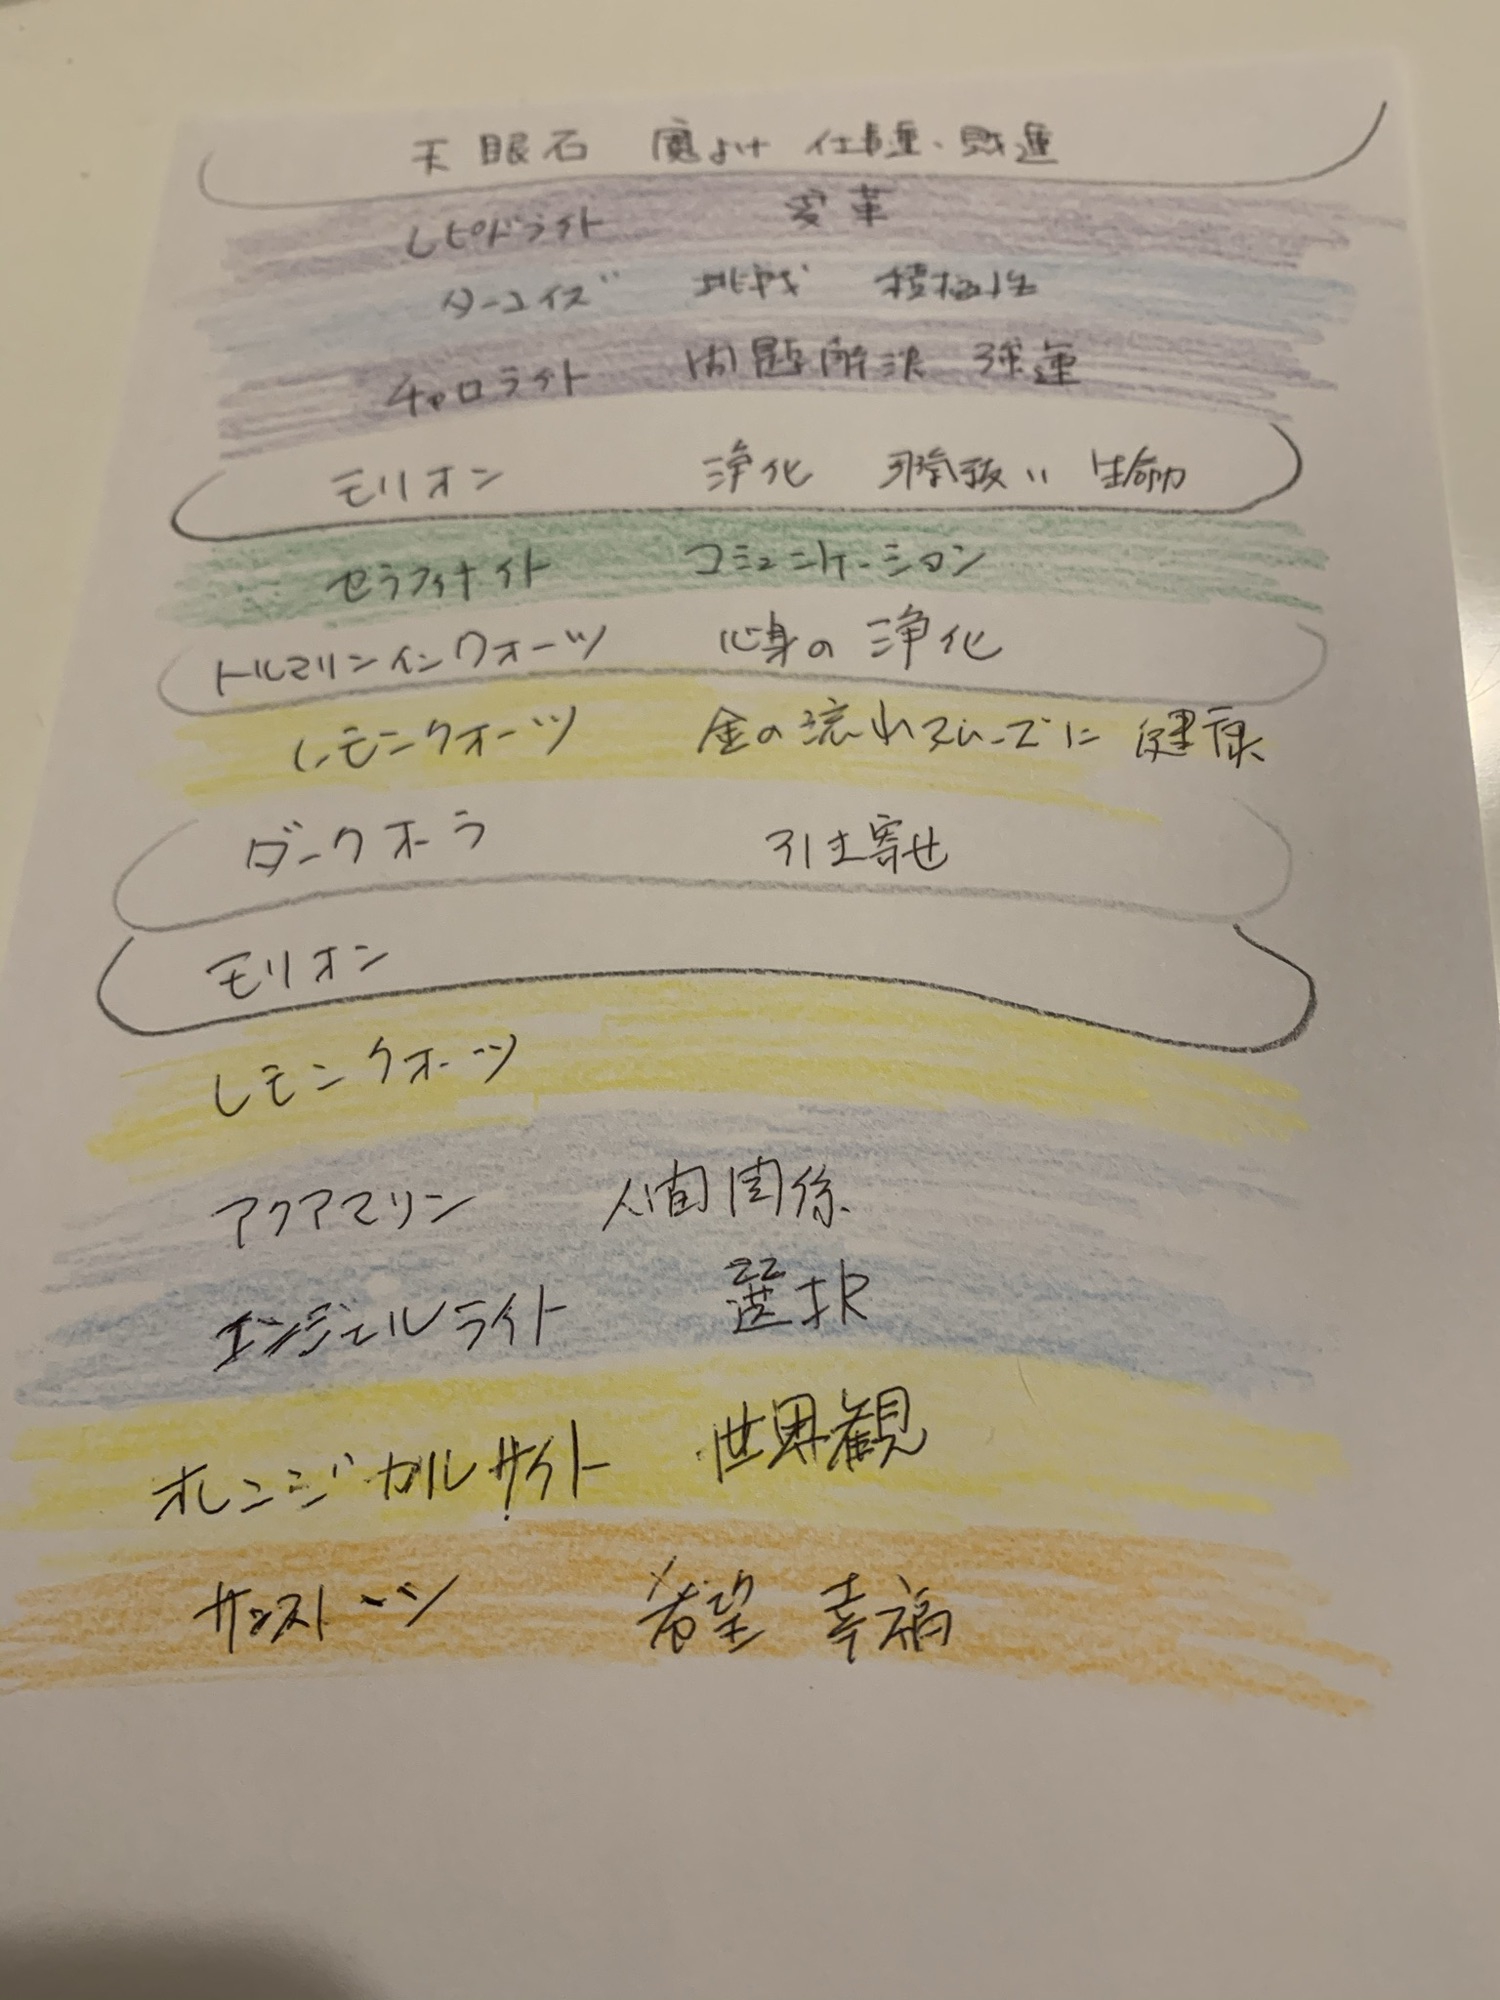 天眼石 魔よけ 仕事運・財運
レピドライト 変革
ターコイズ 挑戦 積極性
チャロライト 問題解決 強運
モリオン 浄化 邪気祓い 生命力
セラフィナイト コミュニケーション
トルマリンインクォーツ 心身の浄化
レモンクォーツ 金の流れスムーズに 健康
ダークオーラ 引き寄せ
モリオン
レモンクォーツ
アクアマリン 人間関係
エンジェルライト 選択
オレンジカルサイト 世界観
サンストーン 希望 幸福